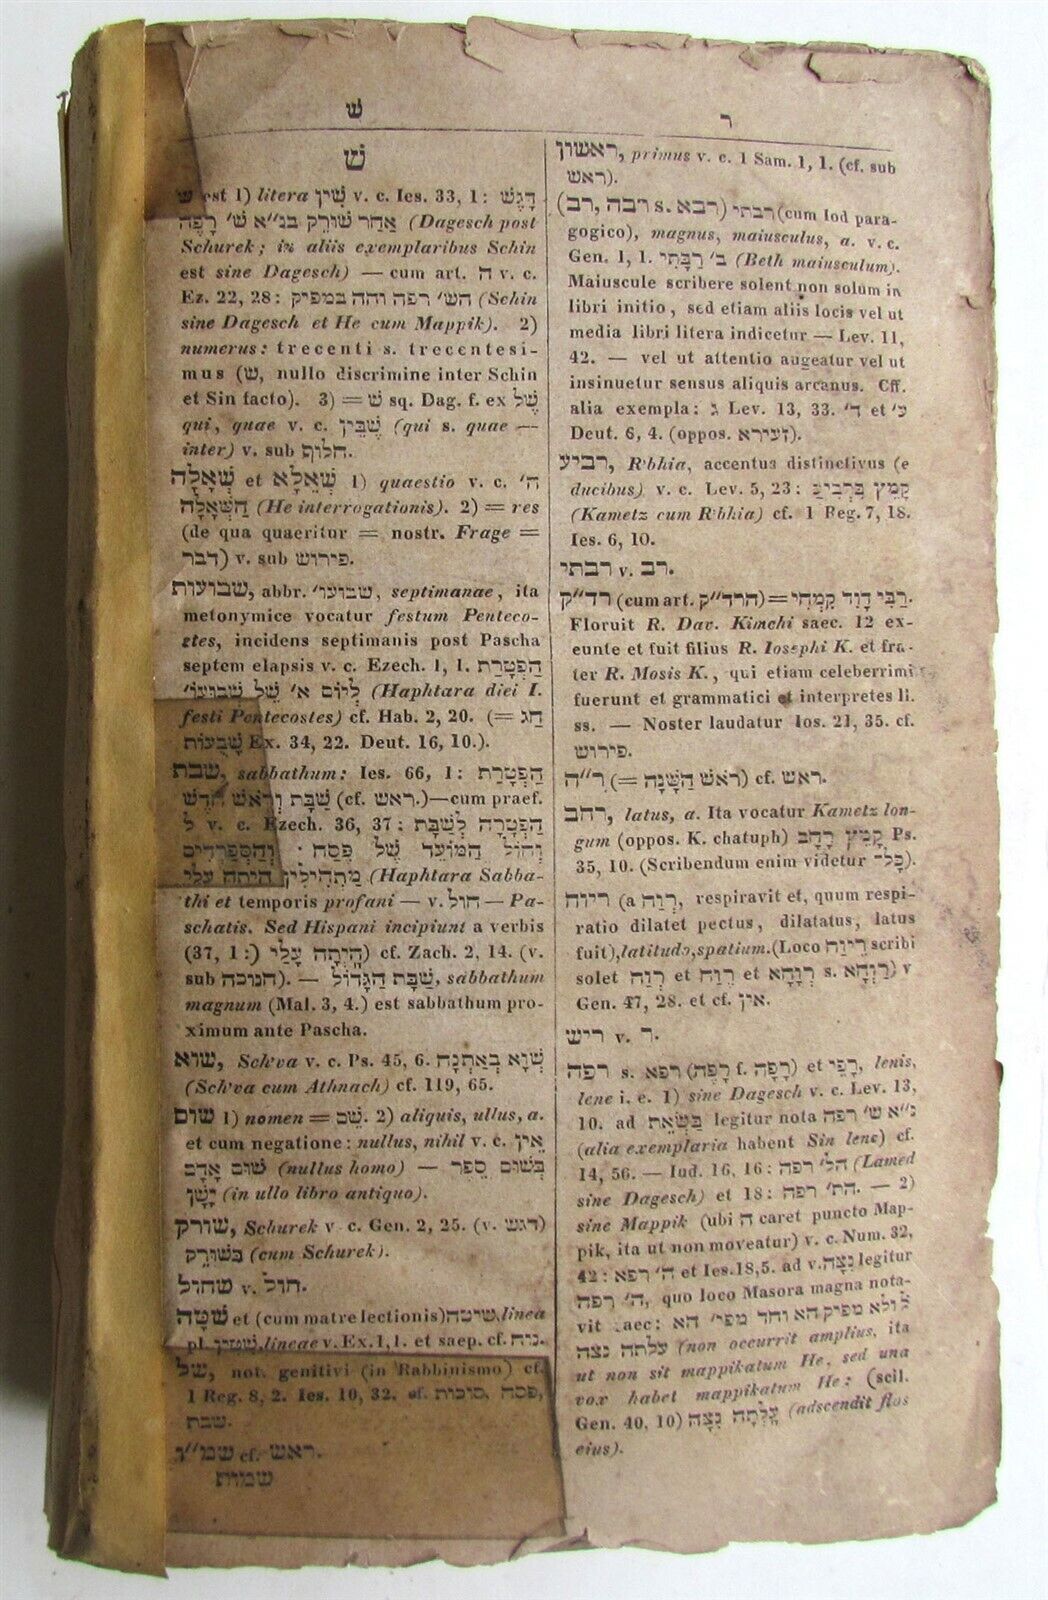 ר
ש
ראשון, primus v. c. 1 Sam. 1, 1. (cf. sub
ראש).
רבתי (רבא .s רבה, רב) (cum Iod para-
gogico), magnus, maiusculus, a. v. c.
Gen. 1, 1. ב׳ רַבָּתִי (Beth maiusculum).
Maiuscule scribere solent non solum in
libri initio, sed etiam aliis locis vel ut
media libri litera indicetur — Lev. 11,
42. — vel ut attentio augeatur vel ut
insinuetur sensus aliquis arcanus. Cff.
alia exempla: ג Lev. 13, 33. ד׳ et ע׳
Deut. 6, 4. (oppos. זעירא).
רביע, R'bhia, accentus distinctivus (e
ducibus) v. c. Lev. 5, 23: קָמֶץ בִּרְבִיעַ
(Kametz cum R'bhia) cf. 1 Reg. 7, 18.
Ies. 6, 10.
רבתי v. רב.
רד״ק (cum art. הרד״ק)=רַבִּי דָוִד קִמְחִי.
Floruit R. Dav. Kimchi saec. 12 ex-
eunte et fuit filius R. Iosephi K. et fra-
ter R. Mosis K., qui etiam celeberrimi
fuerunt et grammatici et interpretes li.
ss. — Noster laudatur Ios. 21, 35. cf.
פירוש.
ר״ה (=רֹאשׁ הַשָּׁנָה) cf. ראש.
רחב, latus, a. Ita vocatur Kametz lon-
gum (oppos. K. chatuph) קָמֶץ רָחָב Ps.
35, 10. (Scribendum enim videtur כָּל־).
ריוח (a רָוַח, respiravit et, quum respi-
ratio dilatet pectus, dilatatus, latus
fuit), latitudo, spatium. (Loco רֵיוַח scribi
solet רֶוַח et רֵוַח et רְוָחָא s. רַוְחָא) v
Gen. 47, 28. et cf. אין.
ריש v. ר.
רפה s. רפא (רָפֶה f. רָפָה) et רָפֵי, lenis,
lene i. e. 1) sine Dagesch v. c. Lev. 13,
10. ad בַּשְּׂאֵת legitur nota נ״א ש׳ רפה
(alia exemplaria habent Sin lene) cf.
14, 56. — Iud. 16, 16: הל׳ רפה (Lamed
sine Dagesch) et 18: הת׳ רפה. — 2)
sine Mappik (ubi ה caret puncto Map-
pik, ita ut non moveatur) v. c. Num. 32,
42: ה׳ רפא et Ies. 18, 5. ad v. נִצָּה legitur
ה׳ רפה, quo loco Masora magna nota-
vit haec: לֹ ולא מפיק הא וחד מפי׳ הא
עלתה נצה (non occurrit amplius, ita
ut non sit mappikatum He, sed una
vox habet mappikatum He: (scil.
Gen. 40, 10) עָלְתָה נִצָּהּ (adscendit flos
eius).
שׁ
ש est 1) litera שִׁין v. c. Ies. 33, 1: דָּגֵשׁ
אַחַר שׁוּרֵק בנ״א ש׳ רָפֶה (Dagesch post
Schurek; in aliis exemplaribus Schin
est sine Dagesch) — cum art. ה v. c.
Ez. 22, 28: הש׳ רפה והה במפיק (Schin
sine Dagesch et He cum Mappik). 2)
numerus: trecenti s. trecentesi-
mus (ש, nullo discrimine inter Schin
et Sin facto). 3) = שׁ sq. Dag. f. ex שֶׁל
qui, quae v. c. שֶׁבֵּין (qui s. quae —
inter) v. sub חלוף.
שְׁאֵלָא et שְׁאֵלָה 1) quaestio v. c. ה׳
הַשְּׁאֵלָה (He interrogationis). 2) = res
(de qua quaeritur = nostr. Frage =
דבר) v. sub פירוש.
שבועות, abbr. שבועו׳, septimanae, ita
metonymice vocatur festum Penteco-
stes, incidens septimanis post Pascha
septem elapsis v. c. Ezech. 1, 1. הַפְטָרַת
לְיוֹם א׳ שֶׁל שָׁבוּעוֹ׳ (Haphtara diei I.
festi Pentecostes) cf. Hab. 2, 20. (= חַג
שָׁבֻעוֹת Ex. 34, 22. Deut. 16, 10.).
שבת, sabbathum: Ies. 66, 1: הַפְטָרַת
שַׁבָּת וְרֹאשׁ חֹדֶשׁ (cf. ראש.)—cum praef.
ל v. c. Ezech. 36, 37: הַפְטָרָה לְשַׁבָּת
וְחוֹל הַמּוֹעֵד שֶׁל פֶּסַח: וְהַסְּפָרַדִּים
מַתְחִילִין הָיְתָה עָלַי (Haphtara Sabba-
thi et temporis profani — v. חול — Pa-
schatis. Sed Hispani incipiunt a verbis
(37, 1:) הָיְתָה עָלַי) cf. Zach. 2, 14. (v.
sub חנוכה). — שַׁבָּת הַגָּדוֹל, sabbathum
magnum (Mal. 3, 4.) est sabbathum pro-
ximum ante Pascha.
שוא, Sch'va v. c. Ps. 45, 6. שְׁוָא בְּאַתְנָח
(Sch'va cum Athnach) cf. 119, 65.
שום 1) nomen = שֵׁם. 2) aliquis, ullus, a.
et cum negatione: nullus, nihil v. c. אֵין
שׁוּם אָדָם (nullus homo) — בְּשׁוּם סֵפֶר
יָשָׁן (in ullo libro antiquo).
שורק, Schurek v c. Gen. 2, 25. (v. דגש)
בְּשׁוּרֵק (cum Schurek).
שחול v. חול.
שִׁטָּה et (cum matre lectionis) שיטה, linea
pl. שִׁטִּין, lineae v. Ex. 1, 1. et saep. cf. נוח.
של, not. genitivi (in Rabbinismo) cf.
1 Reg. 8, 2. Ies. 10, 32. cf. פסח, סוכות,
שבת.
שמ״ו cf. ראש.
שמות